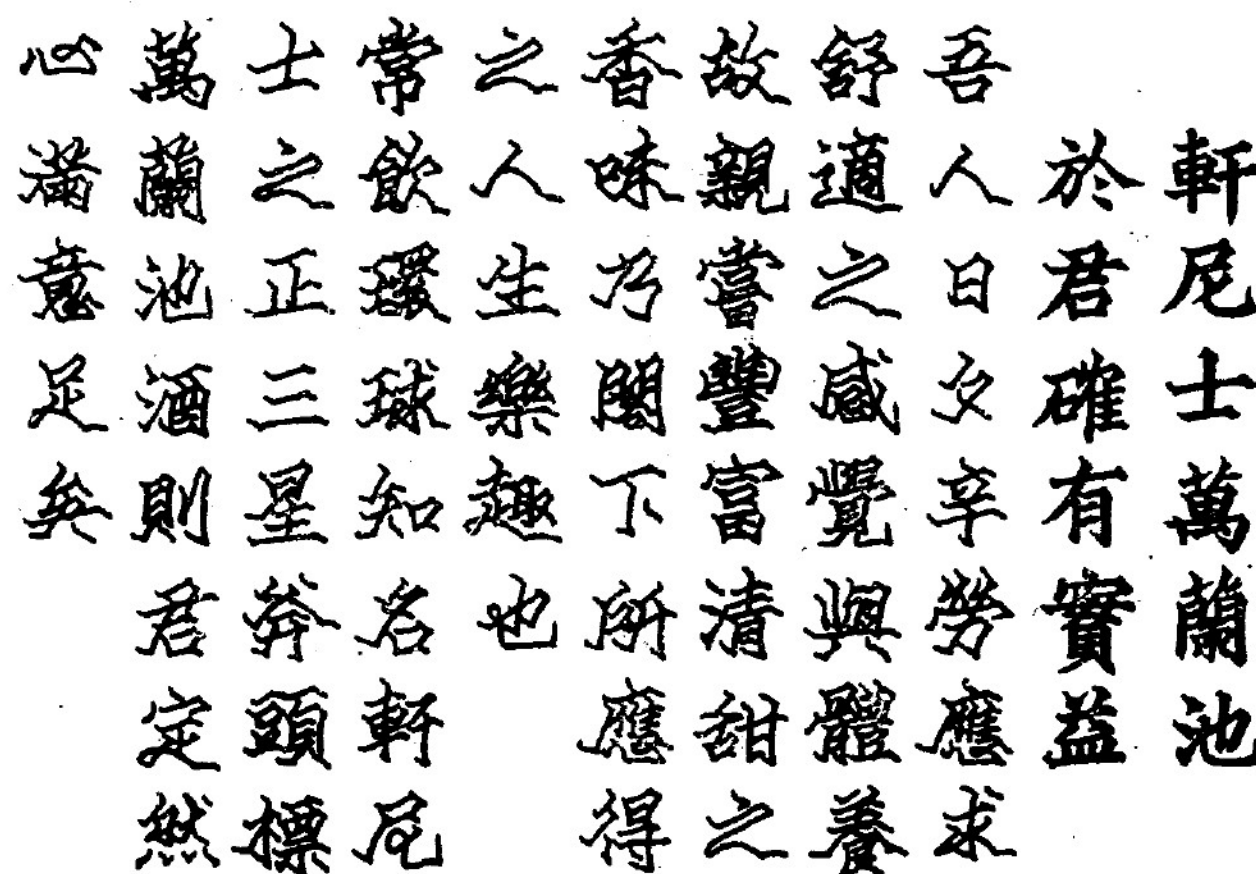 軒尼士萬蘭池
於君確有實益
吾人日夕辛勞應求
舒適之感覺與體養
故親嘗豐富清甜之
香味乃閣下所應得
之人生樂趣也
常飲環球知名軒尼
士之正三星斧頭標
萬蘭池酒則君定然
心滿意足矣